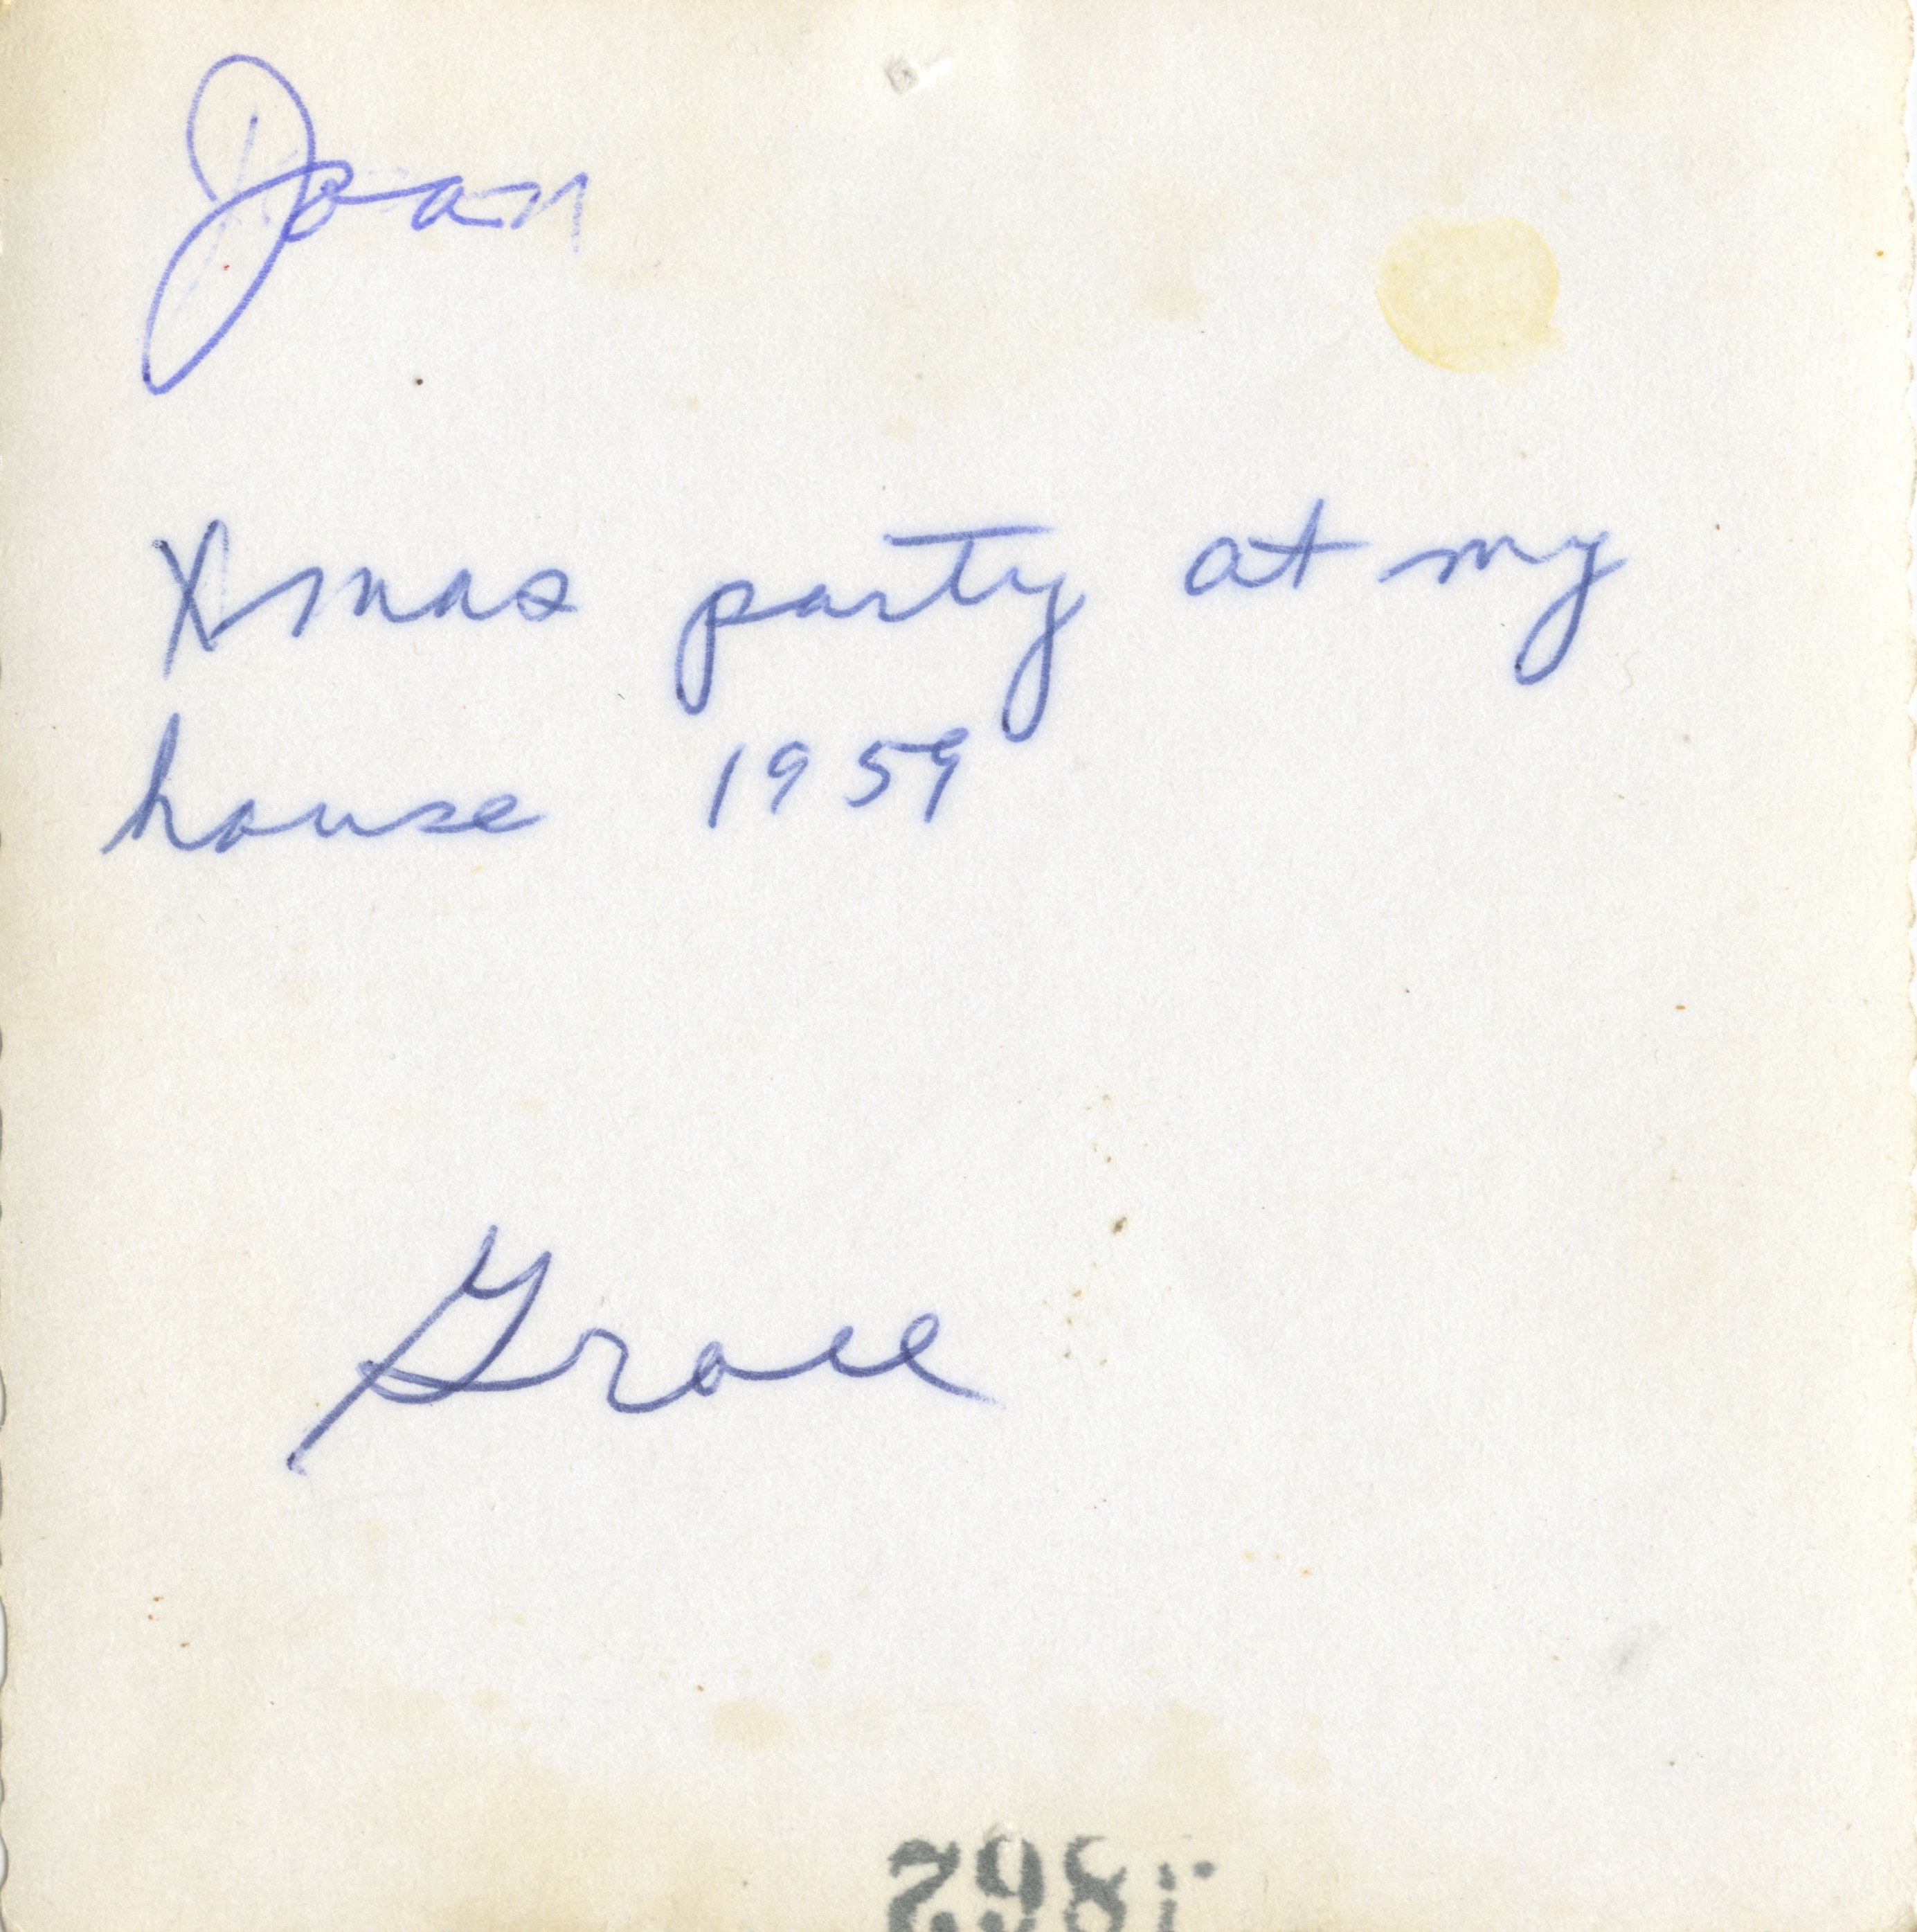 Joan
Xmas party at my
house 1959
Grace